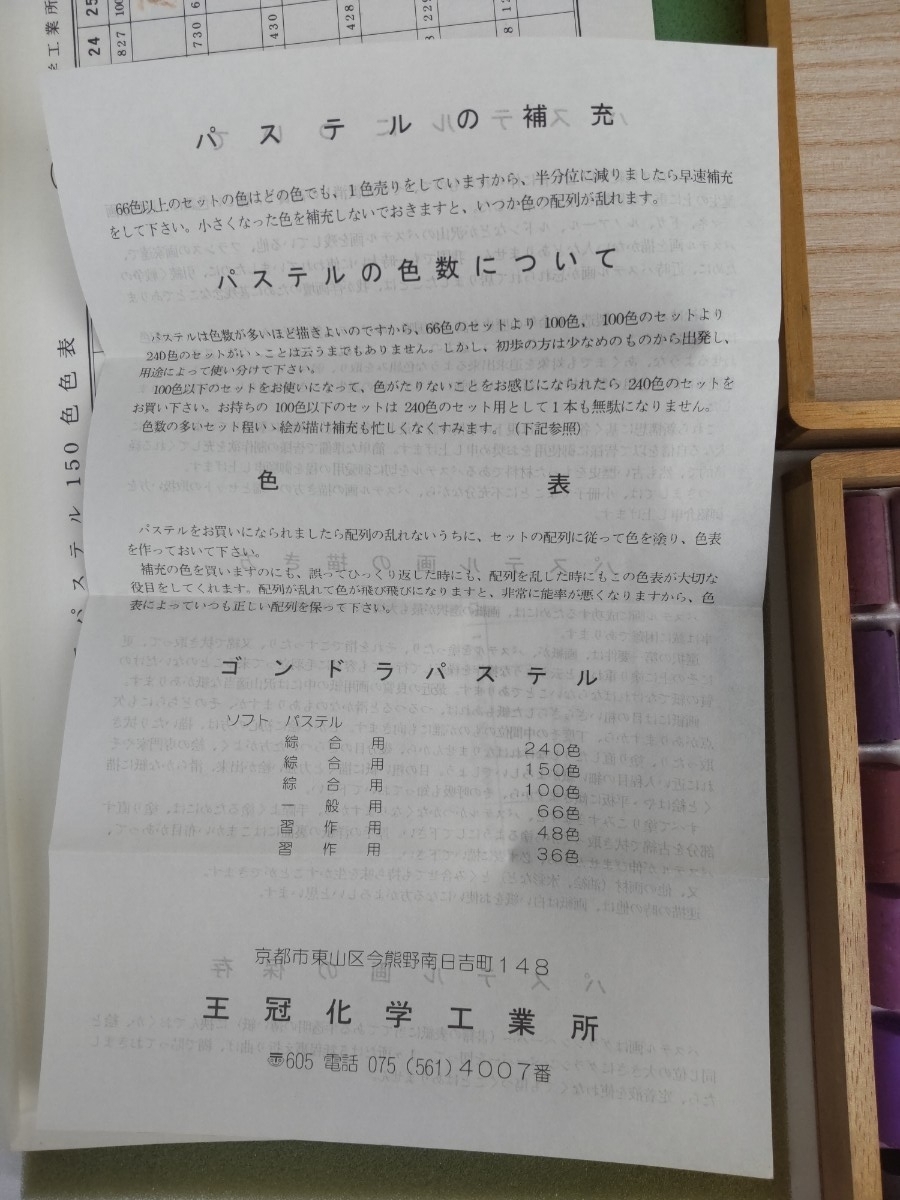 工業所
24
25
827
100
730
430
428
パステル150色色表
パステルの補充
66色以上のセットの色はどの色でも、1色売りをしていますから、半分位に減りましたら早速補充
をして下さい。小さくなった色を補充しないでおきますと、いつか色の配列が乱れます。
パステルの色数について
パステルは色数が多いほど描きよいのですから、66色のセットより100色、100色のセットより
240色のセットがいゝことは云うまでもありません。しかし、初歩の方は少なめのものから出発し、
用途によって使い分けて下さい。
100色以下のセットをお使いになって、色がたりないことをお感じになられたら240色のセットを
お買い下さい。お持ちの100色以下のセットは240色のセット用として1本も無駄になりません。
色数の多いセット程いゝ絵が描け補充も忙しくなくすみます。(下記参照)
色表
パステルをお買いになられましたら配列の乱れないうちに、セットの配列に従って色を塗り、色表
を作っておいて下さい。
補充の色を買いますのにも、誤ってひっくり返した時にも、配列を乱した時にもこの色表が大切な
役目をしてくれます。配列が乱れて色が飛び飛びになりますと、非常に能率が悪くなりますから、色
表によっていつも正しい配列を保って下さい。
ゴンドラパステル
ソフト パステル
綜合用 240色
綜合用 150色
綜合用 100色
一般用 66色
習作用 48色
習作用 36色
京都市東山区今熊野南日吉町148
王冠化学工業所
〒605 電話 075(561)4007番